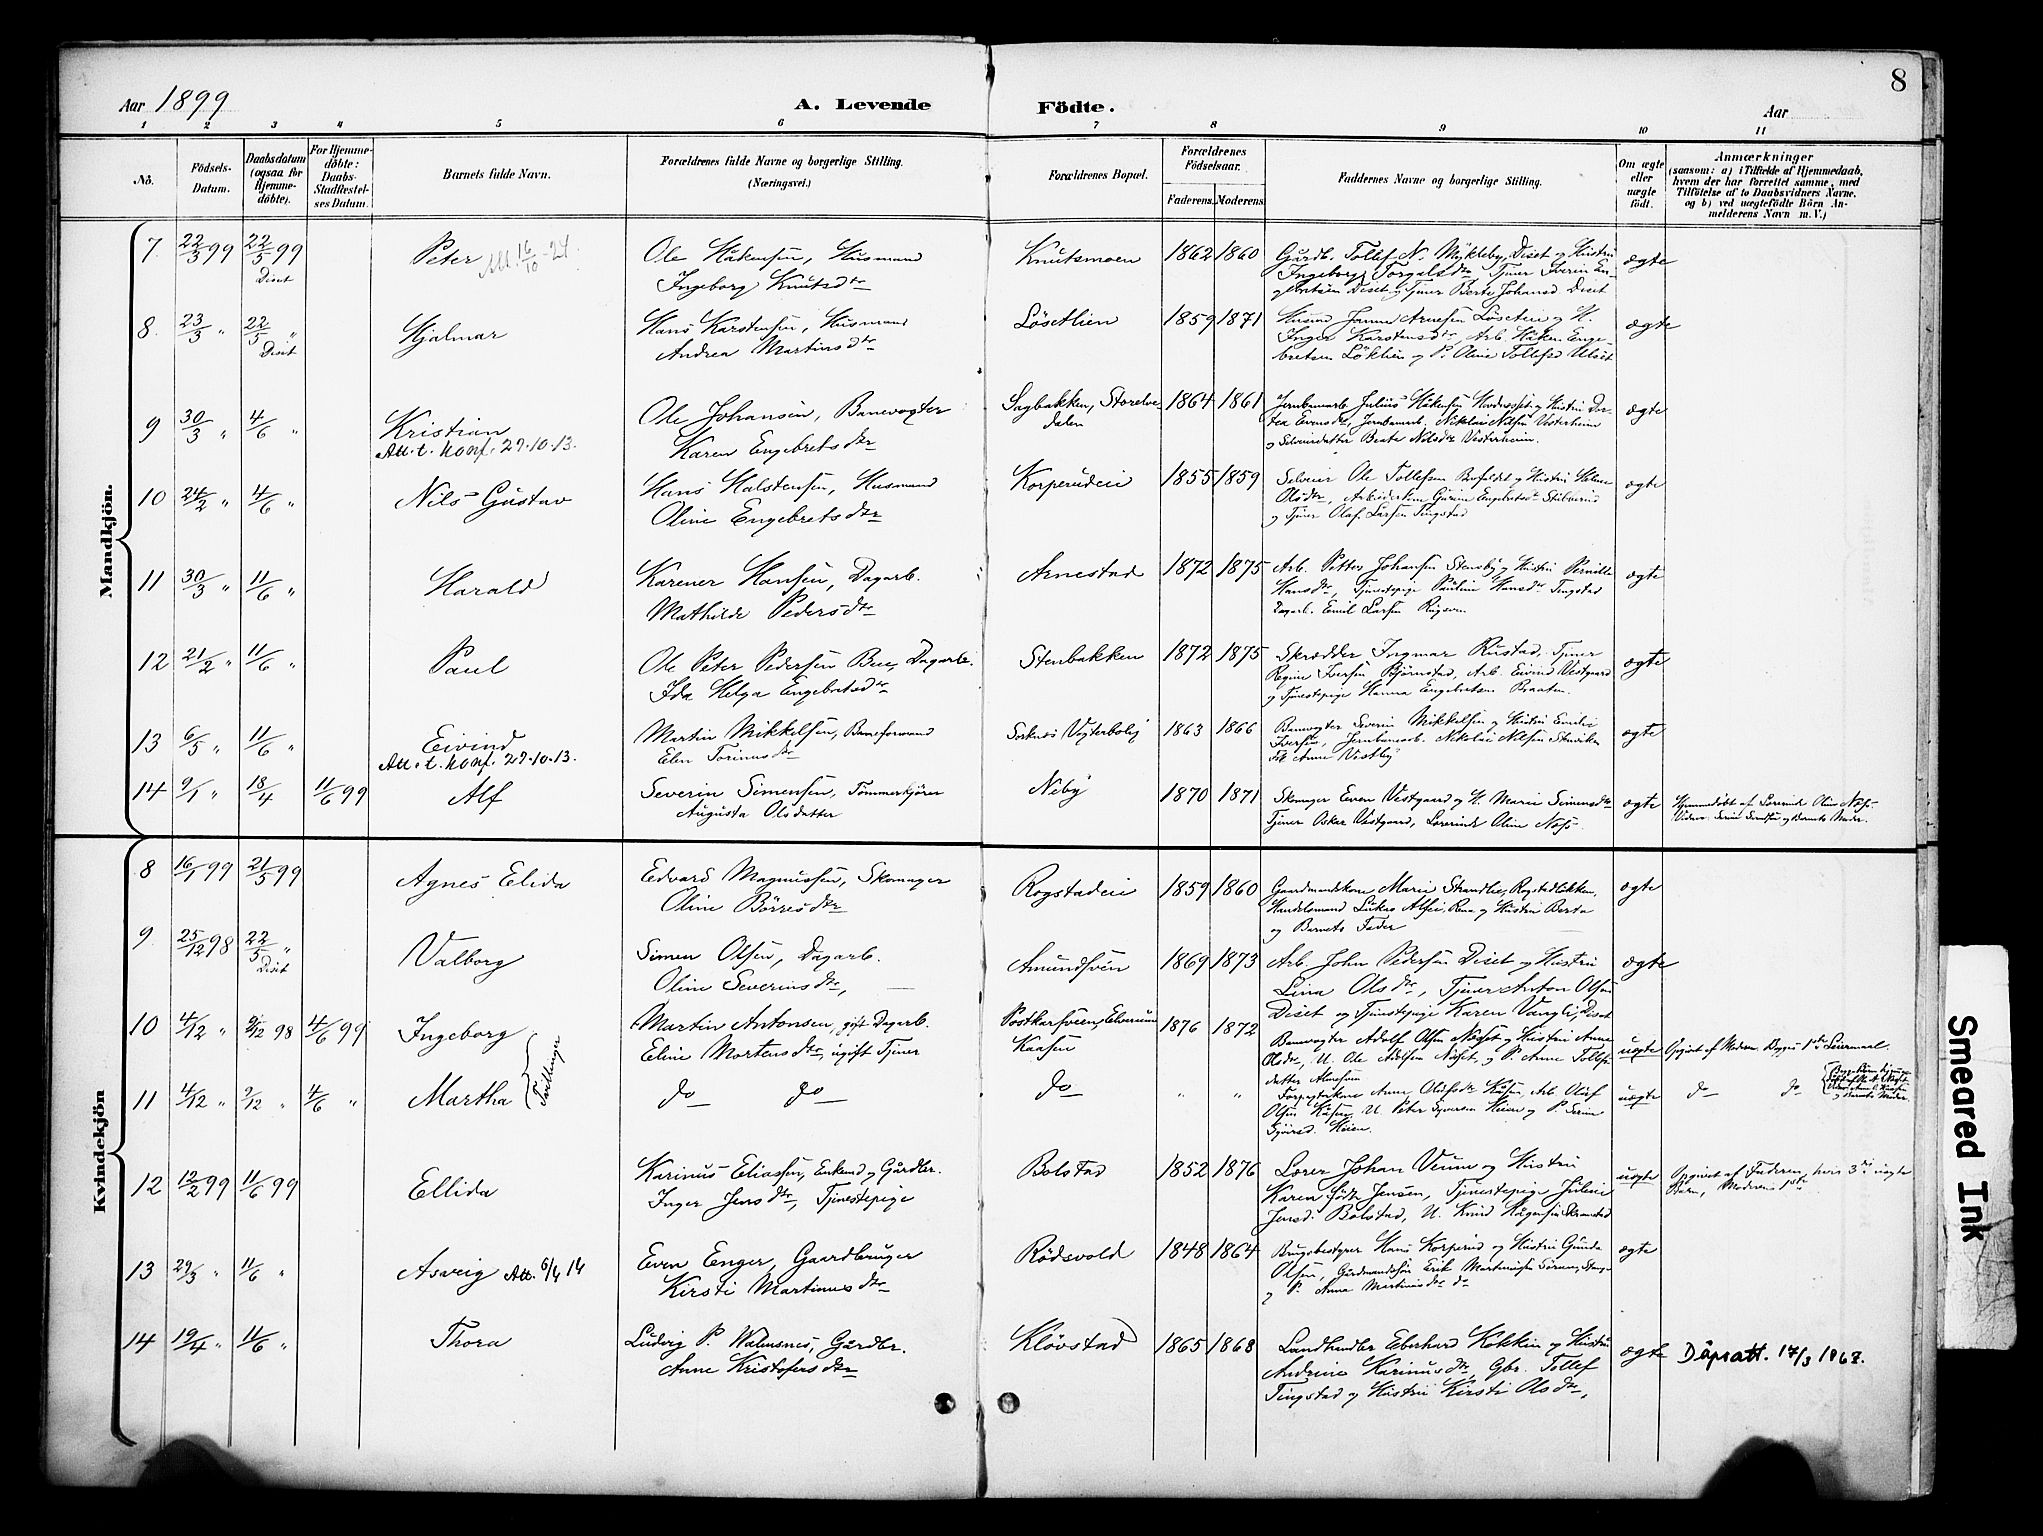 8
Aar 1899
A. Levende
Födte.
Aar
1 2 3 4 5 6 7 8 9 10 11
No.
Födsels-Datum.
Daabsdatum (ogsaa for Hjemmedöbte).
For Hjemmedöbte: Daabs-Stadfæstelses Datum.
Barnets fulde Navn.
Forældrenes fulde Navne og borgerlige Stilling. (Næringsvei.)
Forældrenes Bopæl.
Forældrenes Födselsaar. Faderens. Moderens.
Faddernes Navne og borgerlige Stilling.
Om ægte eller uægte födt.
Anmærkninger
(saasom: a) i Tilfælde af Hjemmedaab, hvem der har forrettet samme, med Tilföielse af to Daabsvidners Navne. og b) ved uægtefödte Börn Anmelderens Navn m. V.)
Mandkjön.
7 22/3 99 22/5 99 Diset Peter Att. 16/10-24. Ole Håkensen, Husmand
Ingeborg Knutsdtr Knutsmoen 1862 1860 Gårdb. Tollef N. Mykleby, Diset og Hustru
Ingeborg Torgalsdtr, Tjener Iverin En-
gebretsen Diset og Tjener Berte Johansd. Diset ægte
8. 23/3 „ 22/5 „ Diset Hjalmar Hans Karstensen, Husmand
Andrea Martinsdtr Løsetlien 1859 1871 Inger Karstensdtr, Arb. Håken Enge-
bretsen Løklien og P. Oline Tollefsd. ægte
9 30/3 „ 4/6 „ Kristian
Att. t. Konf. 27.10.13. Ole Johansen, Banevogter
Karen Engebretsdtr Sagbakken, Storelve-
dalen 1864 1861 Jernbanearb. Julius Håkensen og Hustru Dor-
tea Evensdtr, Jernbanearb. Nikolai Nilsen Vesterheim
og Selveierdatter Beate Nilsdtr Vesterheim. ægte
10 24/2 „ 4/6 „ Nils Gustav Hans Halstensen, Husmand
Oline Engebretsdtr Korperudeie 1855 1859 Selveier Ole Tollefsen og Hustru Helene
Olsdtr, Arbeiderske Gurine Engebretsdtr
og Tjener Olaf Larsen Tingstad ægte
11 30/3 „ 11/6 „ Harald Karener Hansen, Dagarb.
Mathilde Pedersdtr Arnestad 1872 1875 Arb. Petter Johansen Stensby og Hustru Pernille
Hansdtr, Tjenestepige Pauline Hansdtr Tingstad
Dagarb. Emil Larsen ægte
12 21/2 „ 11/6 „ Paul Ole Peter Pedersen Bue, Dagarb.
Ida Helga Engebretsdtr Stenbakken 1872 1875 Skrædder Ingmar Rustad, Tjener
Regine Iversen Bjørnstad, Arb. Eivind Vestgaard
og Tjenestepige Hanna Engebretsen Braaten. ægte
13 6/5 „ 11/6 „ Eivind
Att. t. Konf. 27.10.13. Martin Mikkelsen, Baneformand
Elen Torinusdtr Sorknes Vogterbolig 1863 1866 Banevogter Severin Mikkelsen og Hustru Emilie
Iversen, Jernbanearb. Nikolai Nilsen
Frk Anne Vestby ægte
14 9/1 „ 18/4 11/6 99 Alf Severin Simensen, Tømmerkjører
Augusta Olsdatter Neby 1870 1871 Skomager Even Vestgaard og H. Marie Simensdtr
Tjener Oskar Vestgaard, Lærerinde Oline Næss. ægte Hjemmedøbt af Lærerinde Oline Næss.
Kvindekjön
8 16/1 99 21/5 99 Agnes Elida Edvard Magnussen, Skomager
Oline Börresdtr Rogstadeie 1859 1860 Gaardmandskone Marie Strandlie, Rogstadløkken,
Handelsmand Lukas Alfei, Rena og Hustru Berta
og Barnets Fader ægte
9 25/12 98 22/5 „ Diset Valborg Simen Olsen, Dagarb.
Oline Severinsdtr, Amundsveen 1869 1873 Arb. John Pedersen Diset og Hustru
Lina Olsdtr, Tjener Anton Olsen
Diset og Tjenestepige Karen Vangli, Diset ægte
10 4/12 „ 9/12 98 4/6 99 Ingeborg Tvillinger Martin Antonsen, gift Dagarb.
Eline Mortensdtr, ugift Tjener Postkarsveen, Elverum
Kaasen 1876 1872 Banevogter Adolf Olsen Næset og Hustru Anne
Olsdtr, U. Ole Adolfsen Næset, og P. Anne Tollefs-
datter uægte Opgivet af Moderen. Begges 1ste Leiermaal.
11 4/12 „ 9/12 „ 4/6 „ Martha do do do „ „ Olsen Kåsen, U. Peter Syversen Heien og P. Serine
Heien. uægte do do
12 12/2 99 11/6 99 Ellida Karinus Eliassen, Enkemd og Gårdbr.
Inger Jensdtr, Tjenestepige Bolstad 1852 1876 Lærer Johan Veum og Hustru
Karen født Jensen, Tjenestepige Juline
Jensd. Bolstad, U. Knud Haagensen Skramstad uægte Opgivet af Faderen, hvis 3die uægte
Barn, Moderens 1ste
13 29/3 „ 11/6 „ Asveig Att. 6/4 14 Even Enger, Gaardbruger
Kirsti Martinusdtr Rödsvold 1848 1864 Brugsbestyrer Hans Korperud og Hustru Gunda
Olsen, Gårdmandssøn Erik Martinussen
og P. Anna Martinusdtr do ægte
14 19/4 „ 11/6 „ Thora Ludvig P. Walmsnes, Gårdbr.
Anne Kristofersdtr Kløvstad 1865 1868 Landhandler Eberhard Kokkin og Hustru
Andrine Karinusdtr, Gbr. Tollef
Tingstad og Hustru Kirsti Olsdtr, ægte Dåpsatt. 17/3 1967.
Smeared Ink